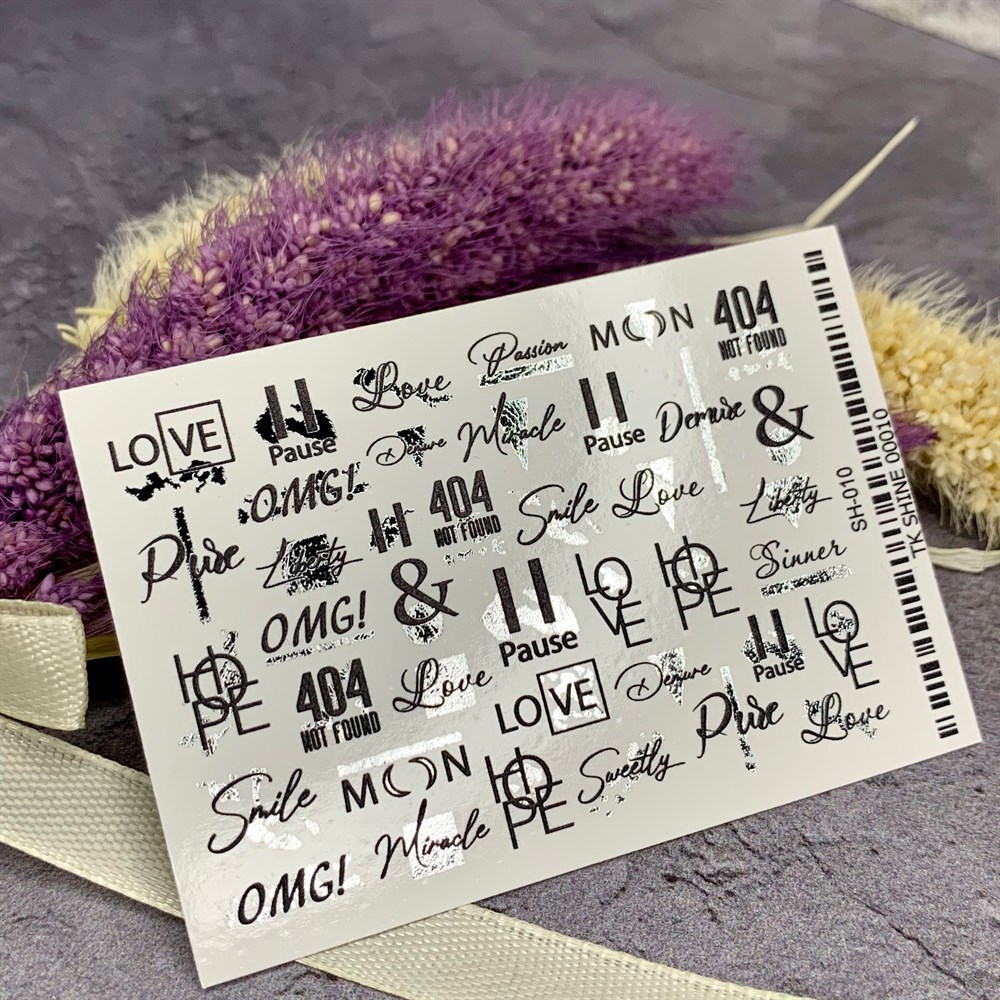 LOVE
Pause
Love
Passion
MOON
404
NOT FOUND
OMG!
Demure
Miracle
Pause
Demure
&
Pure
Liberty
404
NOT FOUND
Smile
Love
Liberty
OMG!
&
Pause
LO
VE
HO
PE
Sinner
HO
PE
404
NOT FOUND
Love
LOVE
Demure
Pause
LO
VE
Smile
MOON
HO
PE
Sweetly
Pure
Love
OMG!
Miracle
SH-010
TK SHINE 00010